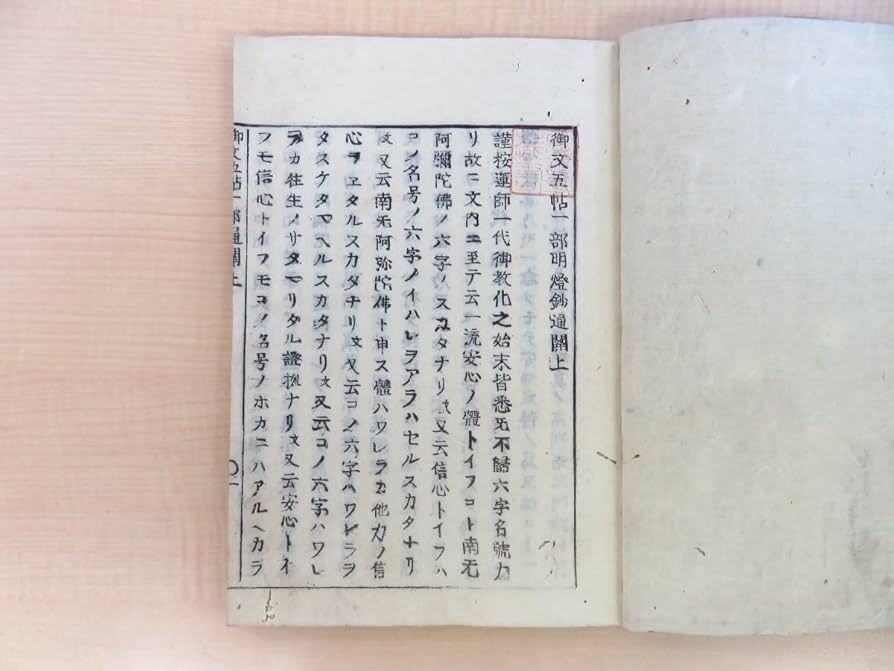 御文五帖一部明燈鈔通關上
謹按蓮師一代御教化之始末皆悉无不歸六字名號カ
リ故ニ文内ニ至テ云一流安心ノ體トイフコト南无
阿彌陀佛ノ六字ノスカタナリ文又云信心トイフハ
コノ名号ノ六字ノイハレヲアラハセルスカタナリ
文又云南无阿弥陀佛ト申ス體ハワレラカ他力ノ信
心ヲヱタルスカタナリ文又云コノ六字ハワレラヲ
タスケタマヘルスカタナリ文又云コノ六字ハワレ
ラカ往生ノサタマリタル證拠ナリ文又云安心トイ
フモ信心トイフモコノ名号ノホカニハアルヘカラ
御文五帖一部通關上